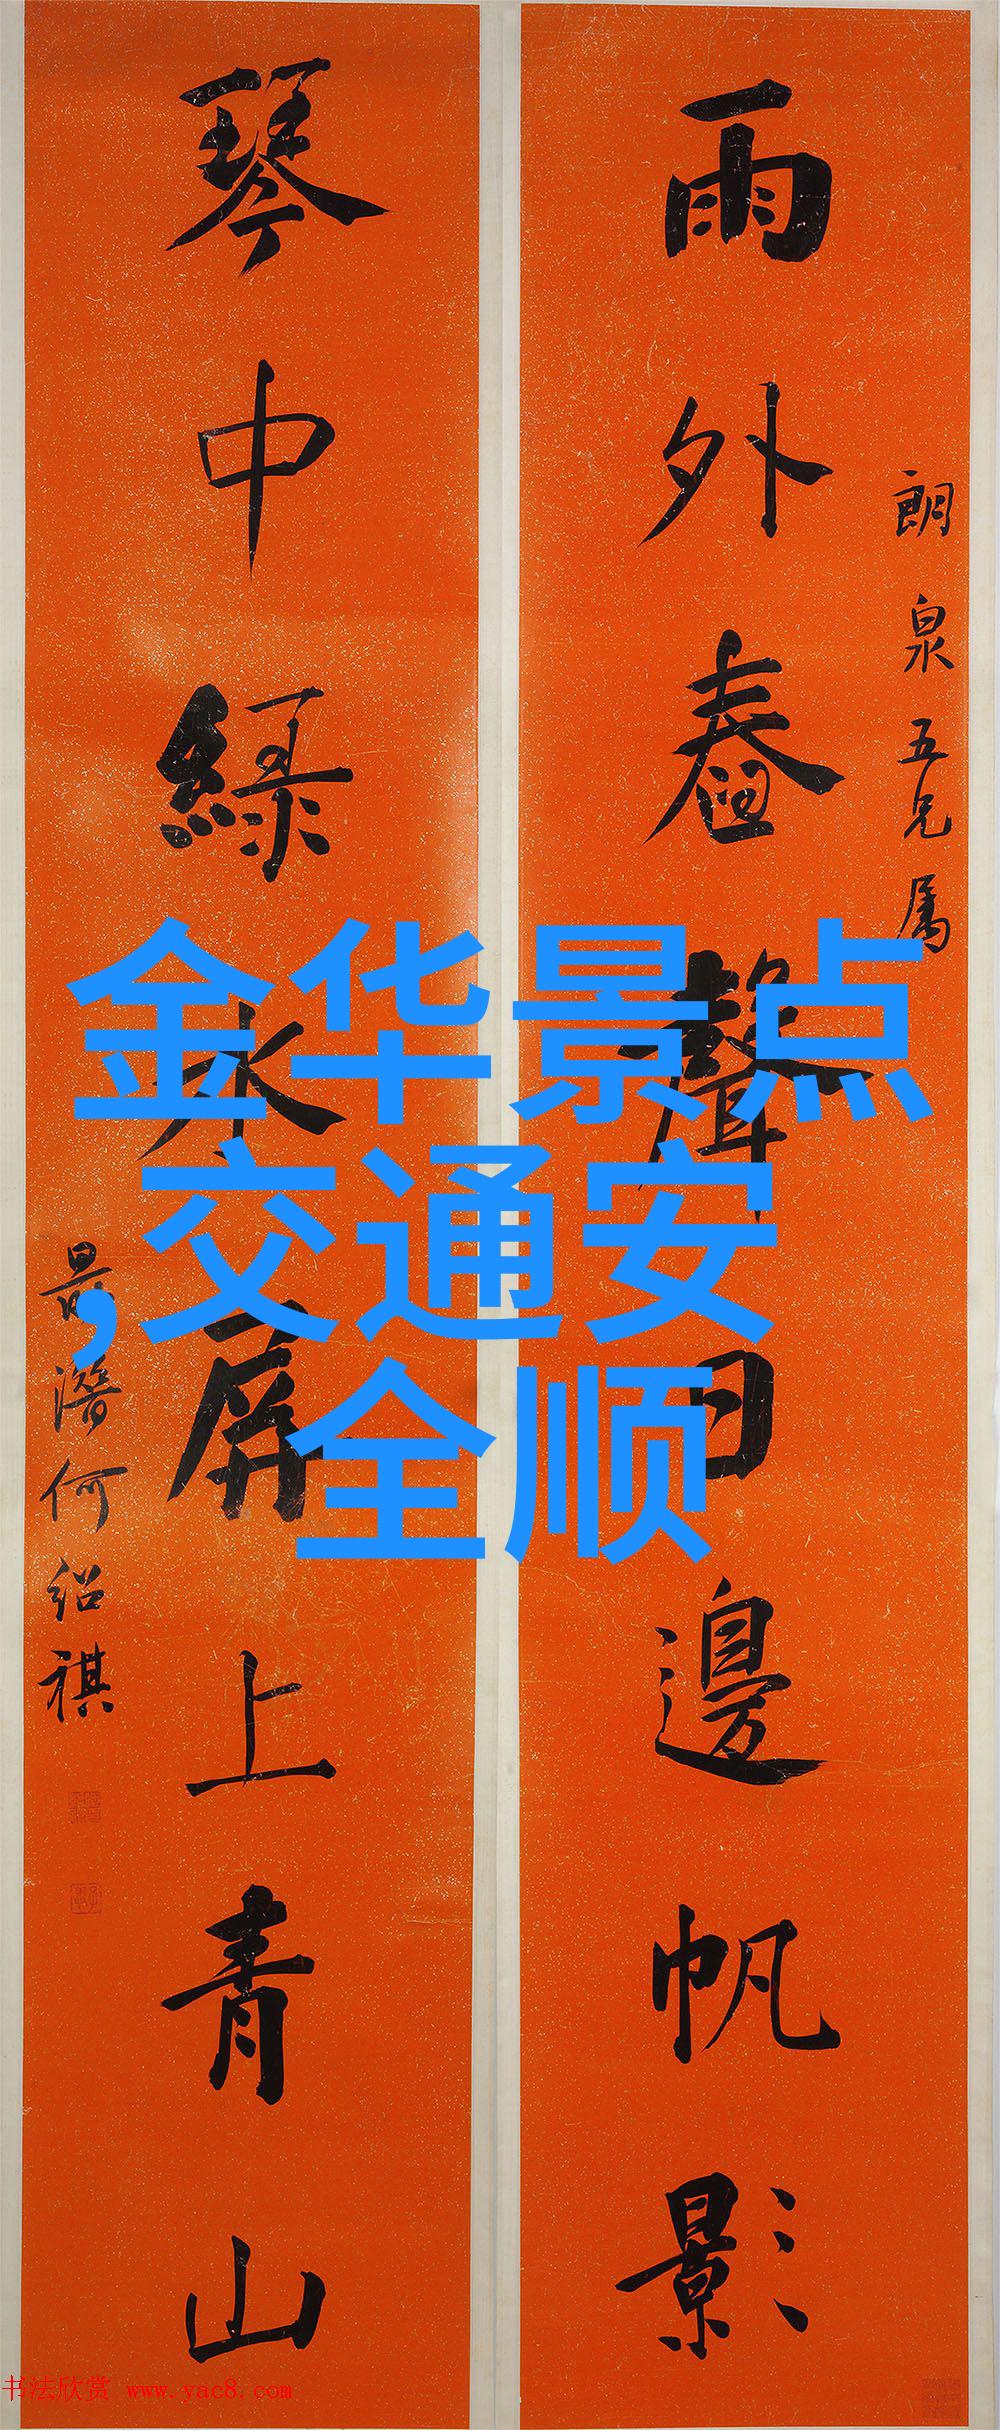 朗泉五兄属
雨外舂聲月邊帆影
琴中綠水屏上青山
潛何绍祺
金华景点
,交通安
全顺
书法欣赏 www.yac8.com